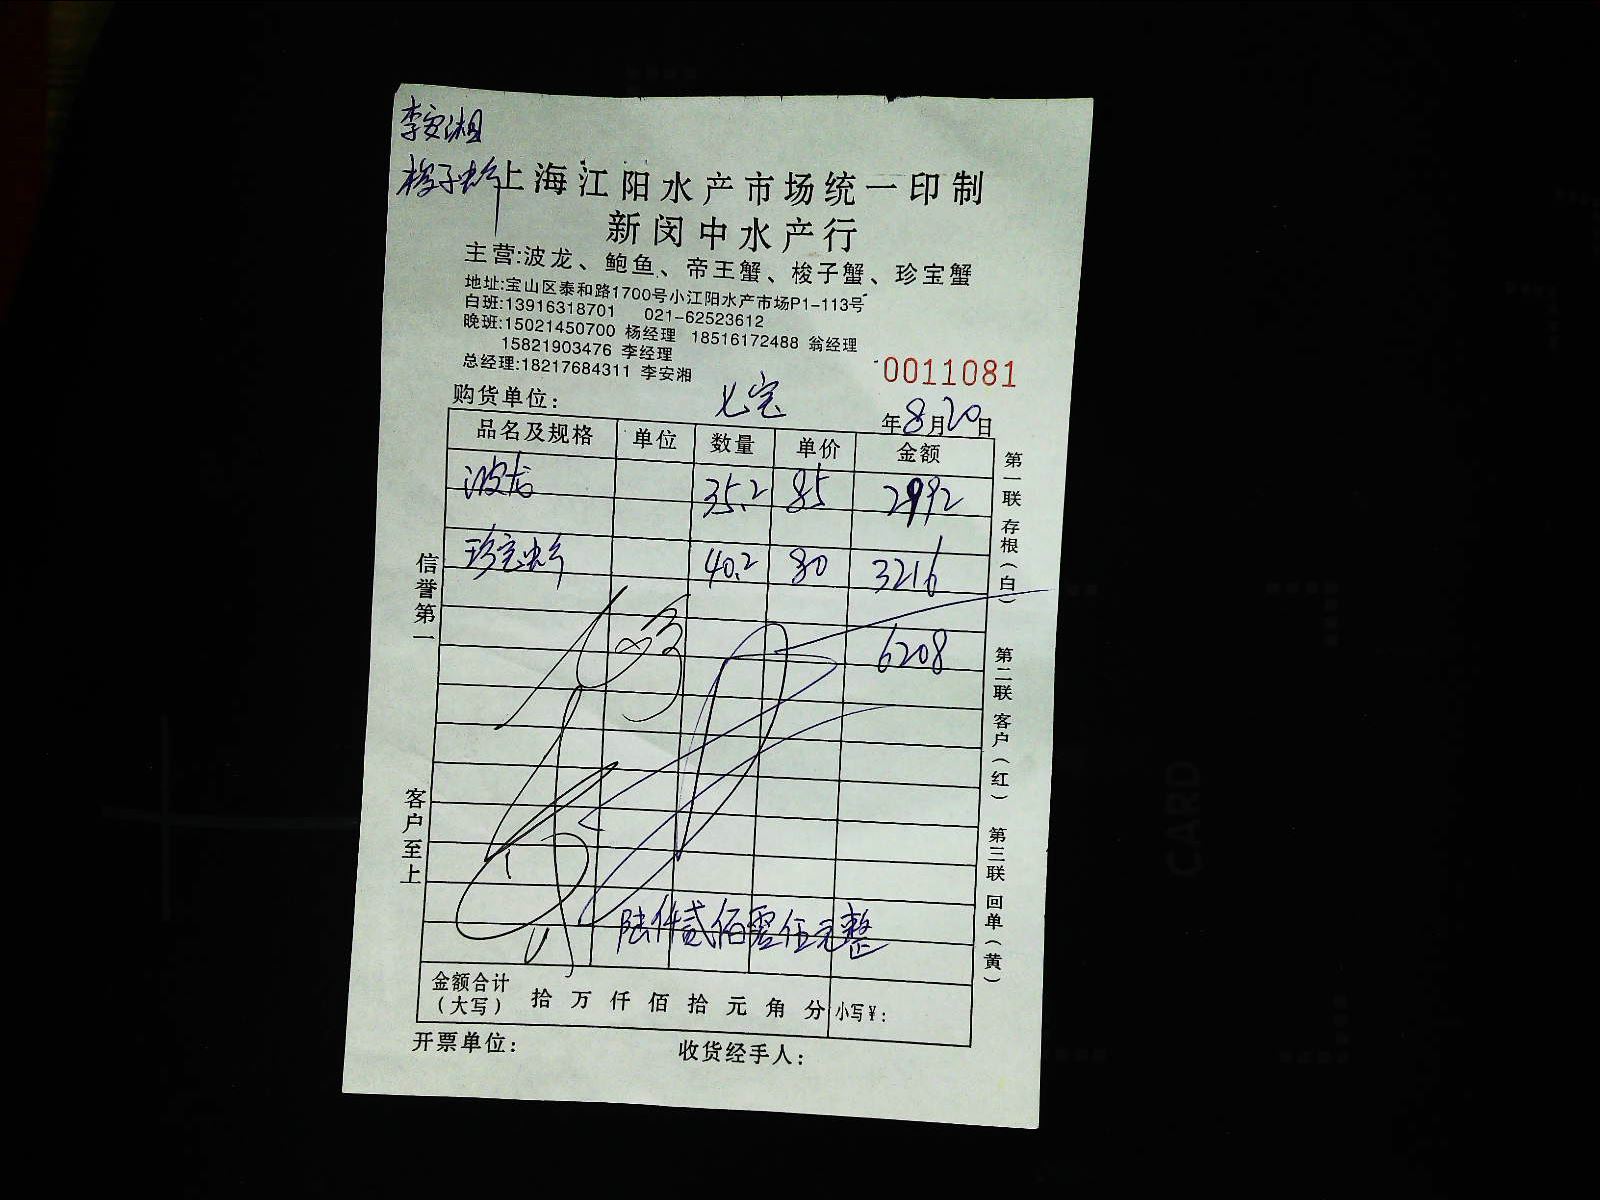 李安湘
梭子蟹
上海江阳水产市场统一印制
新闵中水产行
主营:波龙、鲍鱼、帝王蟹、梭子蟹、珍宝蟹
地址:宝山区泰和路1700号小江阳水产市场P1-113号
白班:13916318701 021-62523612
晚班:15021450700 杨经理 18516172488 翁经理
15821903476 李经理
总经理:18217684311 李安湘
0011081
购货单位: 七宝 年8月20日
品名及规格 单位 数量 单价 金额
波龙 35.2 85 2992
珍宝蟹 40.2 80 3216
6208
陆仟贰佰零伍元整
金额合计
(大写) 拾万仟佰拾元角分 小写¥:
开票单位: 收货经手人:
信誉第一
客户至上
第一联 存根(白)
第二联 客户(红)
第三联 回单(黄)
CARD